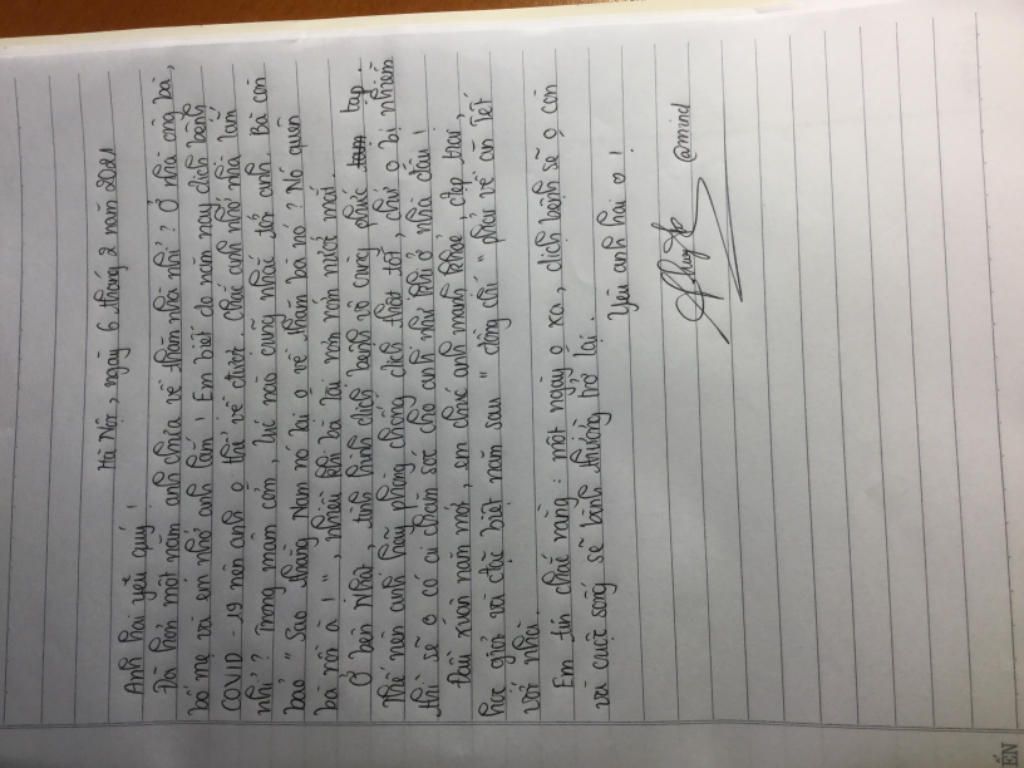 Hà Nội, ngày 6 tháng 2 năm 2021
Anh hai yêu quý !
Đã hơn một năm anh chưa về thăm nhà nhỉ ? Ở nhà ông bà,
bố mẹ và em nhớ anh lắm ! Em biết do năm nay dịch bệnh
COVID - 19 nên anh o thể về được chắc anh nhớ nhà lắm
nhỉ ? Trong mâm cơm, lúc nào cũng nhắc tới anh. Bà còn
bảo " Sao thằng Nam nó lại o về thăm bà nó ? Nó quên
bà rồi à ! ", nhiều khi bà lại rơm rớm nước mắt.
Ở bên Nhật, tình hình dịch bệnh vô cùng phức tạp.
Thế nên anh hãy phòng chống dịch thật tốt, chứ o bị nhiễm
thì sẽ o có ai chăm sóc cho anh như khi ở nhà đâu !
Đầu xuân năm mới, em chúc anh mạnh khoẻ, đẹp trai,
học giỏi và đặc biệt năm sau " đồng chí " phải về ăn Tết
với nhà.
Em tin chắc rằng : một ngày o xa, dịch bệnh sẽ o còn
và cuộc sống sẽ bình thường trở lại.
Yêu anh hai !
@mind
ẾN